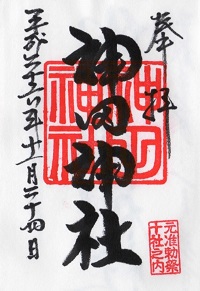 奉拝
神田神社
平成二十六年十二月二十四日
神田神社
元准勅祭
十社之内